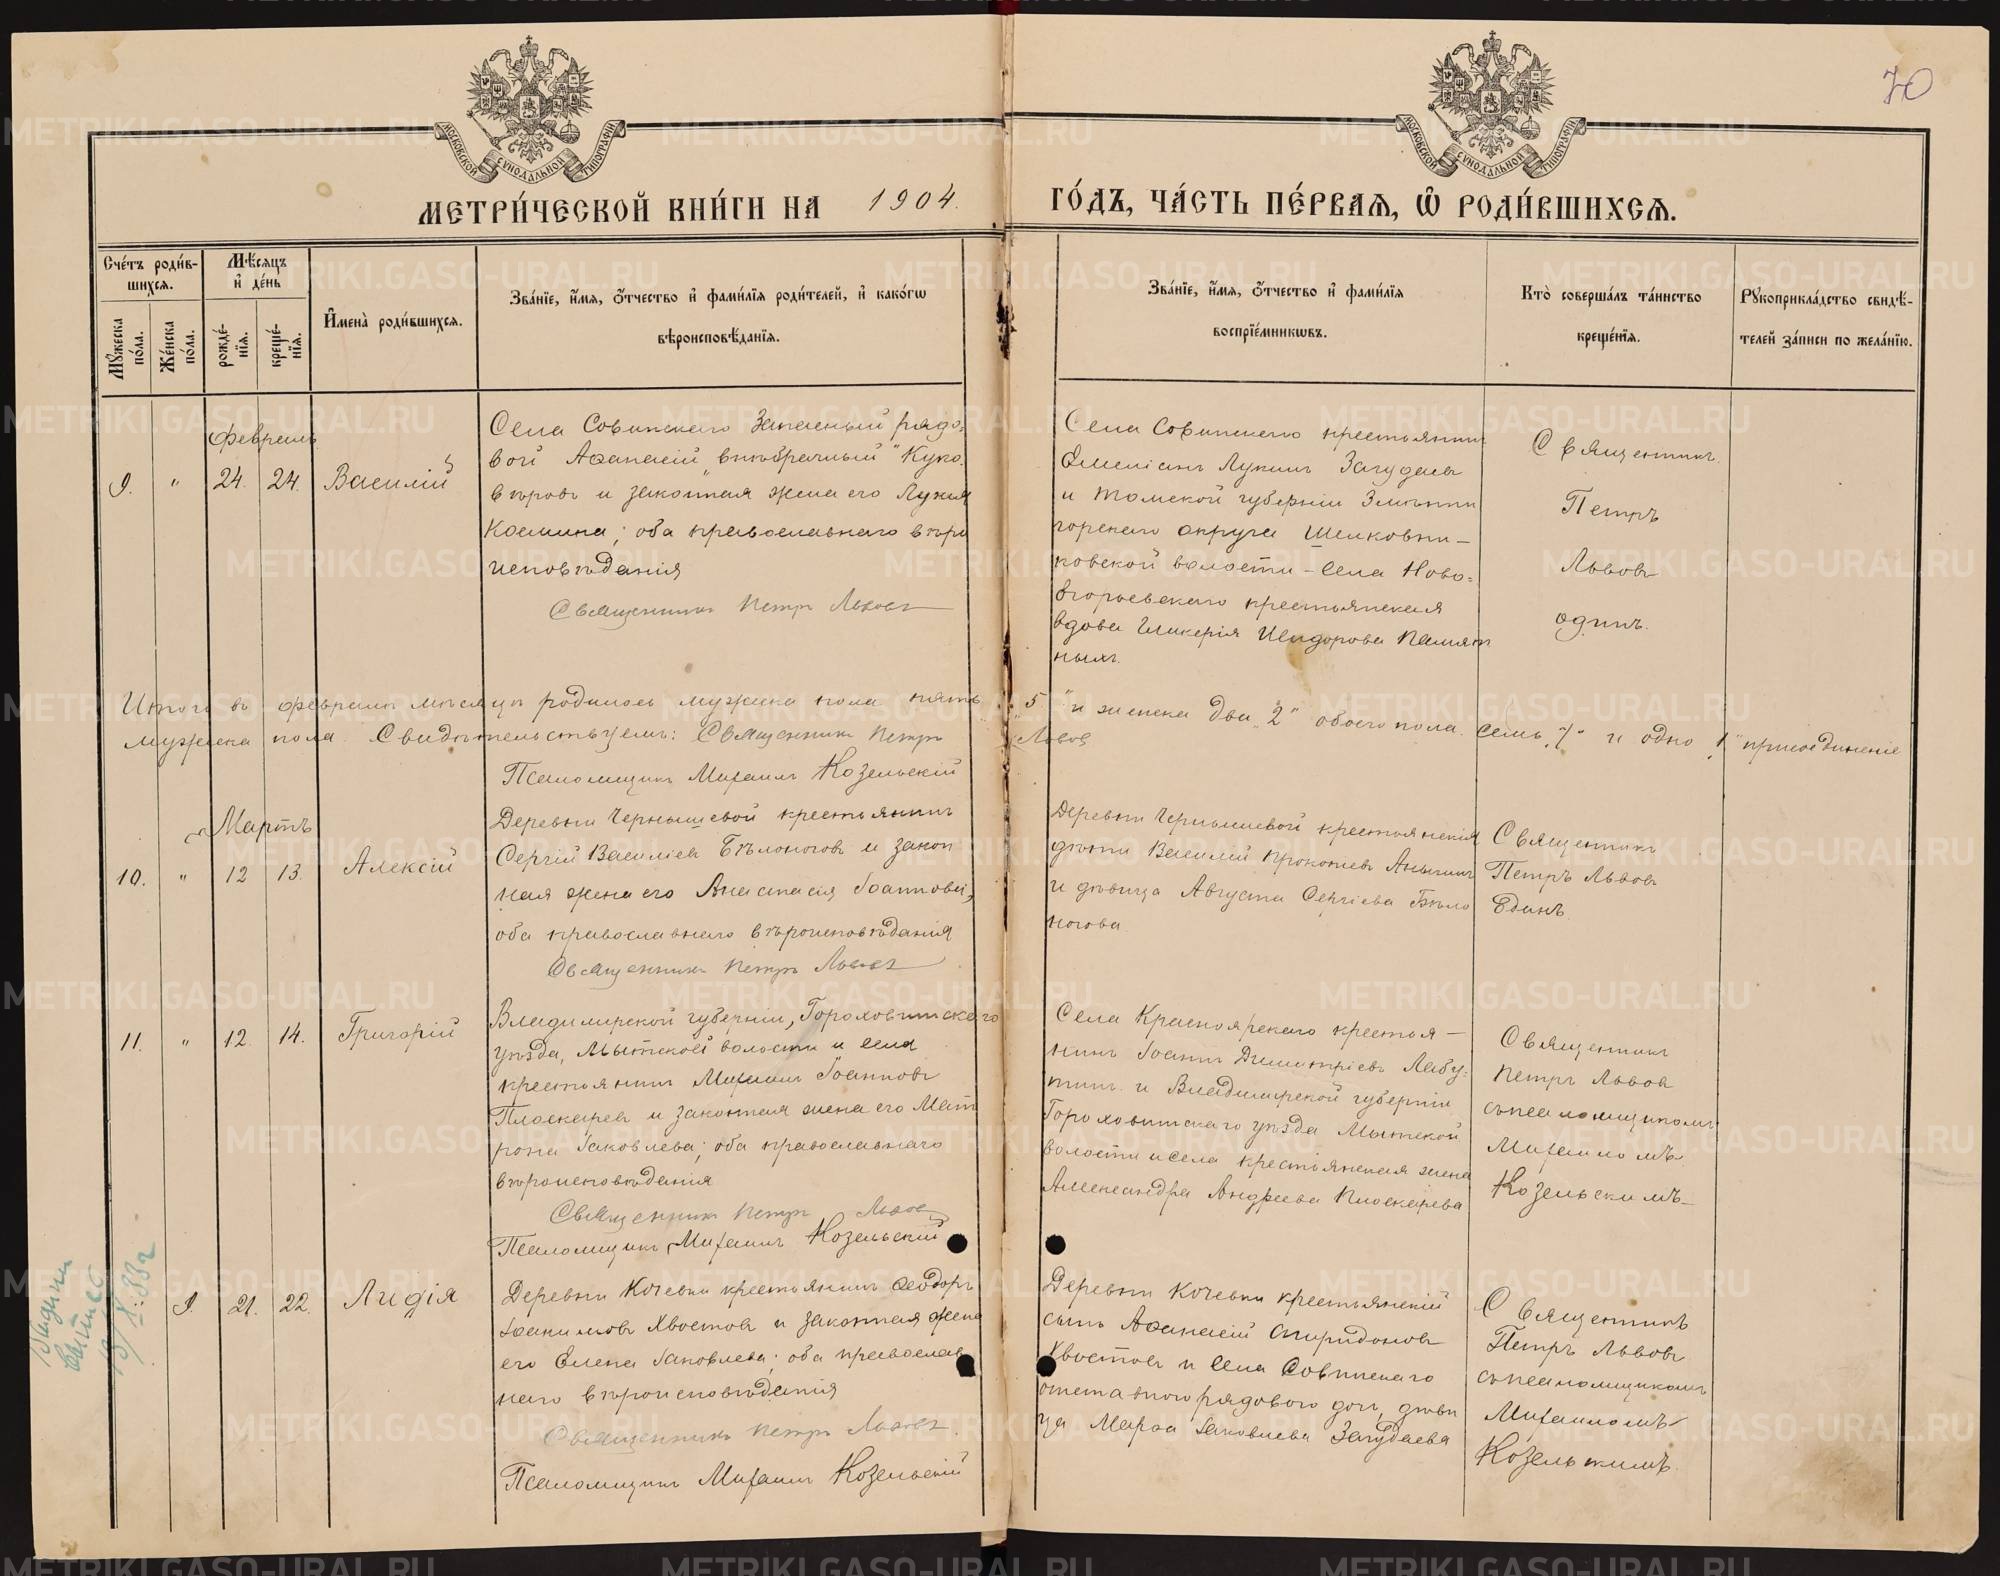 70
МОСКОВСКОЙ СѴНОДАЛЬНОЙ ТИПОГРАФІИ
МОСКОВСКОЙ СѴНОДАЛЬНОЙ ТИПОГРАФІИ
МЕТРИ́ЧЕСКОЙ КНИ́ГИ НА 1904. ГО́ДЪ, ЧА́СТЬ ПЕ́РВАѦ, Ѽ РОДИ́ВШИХСѦ.
Сче́тъ роди́в-
шихсѧ.
Мѹжеска по́ла.
Же́нска по́ла.
Мѣ́сѧцъ
и҆ де́нь
рожде́-
нїѧ.
креще́-
нїѧ.
И҆мена̀ роди́вшихсѧ.
Зва́нїе, и҆́мѧ, ѻ҆́тчество и҆ фами́лїѧ роди́телей, и҆ како́гѡ
вѣроисповѣ́данїѧ.
Зва́нїе, и҆́мѧ, ѻ҆́тчество и҆ фами́лїѧ
воспрїе́мникѡвъ.
Кто̀ соверша́лъ та́инство
креще́нїѧ.
Рѹкоприкла́дство свидѣ́-
телей за́писи по жела́нїю.
Февраль
9. " 24. 24. Василій
Села Совинскаго Запасный рядо-
вой Аѳанасій „внѣбрачный" Куко-
вѣровъ и законная жена его Лукія
Космина; оба православнаго вѣро
исповѣданія
Священникъ Петръ Львовъ
Села Совинскаго крестьянинъ
Емеліанъ Лукинъ Загудаевъ
и Томской губерніи Змѣино
горскаго округа
ковской волости - села Ново-
егорьевскаго крестьянская
вдова Гликерія Исидорова Памят
ныхъ.
Священникъ
Петръ
Львовъ
одинъ.
Итого въ февралѣ мѣсяцѣ родилось мужска пола пять „5" и женска два „2" обоего пола семь „7" и одно „1" присоединеніе
мужеска пола. Свидѣтельствуемъ: Священникъ Петръ Львов
Псаломщикъ Михаилъ Козельскій
Мартъ
10. " 12 13. Алексій
Деревни Чернышевой крестьянинъ
Сергій Василіев Бѣлоноговъ и закон
ная жена его Анастасія Іоаннова,
оба православнаго вѣроисповѣданія
Священникъ Петръ Львовъ
Деревни Чернышевой крестьянскія
дѣти Василій Прокопіев
и дѣвица Августа Сергіева Бѣло
ногова
Священникъ
Петръ Львовъ
Единъ.
11. " 12. 14. Григорій
Владимирской губерніи, Гороховитскаго
уѣзда, Мытской волости и села
крестьянинъ Михаилъ Іоанновъ
Плоскаревъ и законная жена его Мат
рона Іаковлева; оба православнаго
вѣроисповѣданія
Священникъ Петръ Львов
Псаломщикъ Михаилъ Козельскій
Села Красноярскаго крестья-
нинъ Іоаннъ Димитріевъ Лабу-
тинъ и Владимирской губерніи
Гороховитскаго уѣзда Мытской
волости и села крестьянская жена
Александра Андреева Плоскарева
Священникъ
Петръ Львов
съ псаломщикомъ
Михаиломъ
Козельскимъ
9. 21. 22. Лидія
Деревни Кочевки крестьянинъ Ѳеодоръ
Іоакимовъ Хвостовъ и законная жена
его Елена Іаковлева; оба православ
наго вѣроисповѣданія
Священникъ Петръ Львовъ.
Псаломщикъ Михаилъ Козельскій
Деревни Кочевки крестьянскій
сынъ Аѳанасій Спиридоновъ
Хвостовъ и села Совинскаго
отставного рядового дочь, дѣви
ца Марѳа Іаковлева Загудаева
Священникъ
Петръ Львовъ
съ псаломщикомъ
Михаиломъ
Козельскимъ.
13/X:33г
METRIKI.GASO-URAL.RU